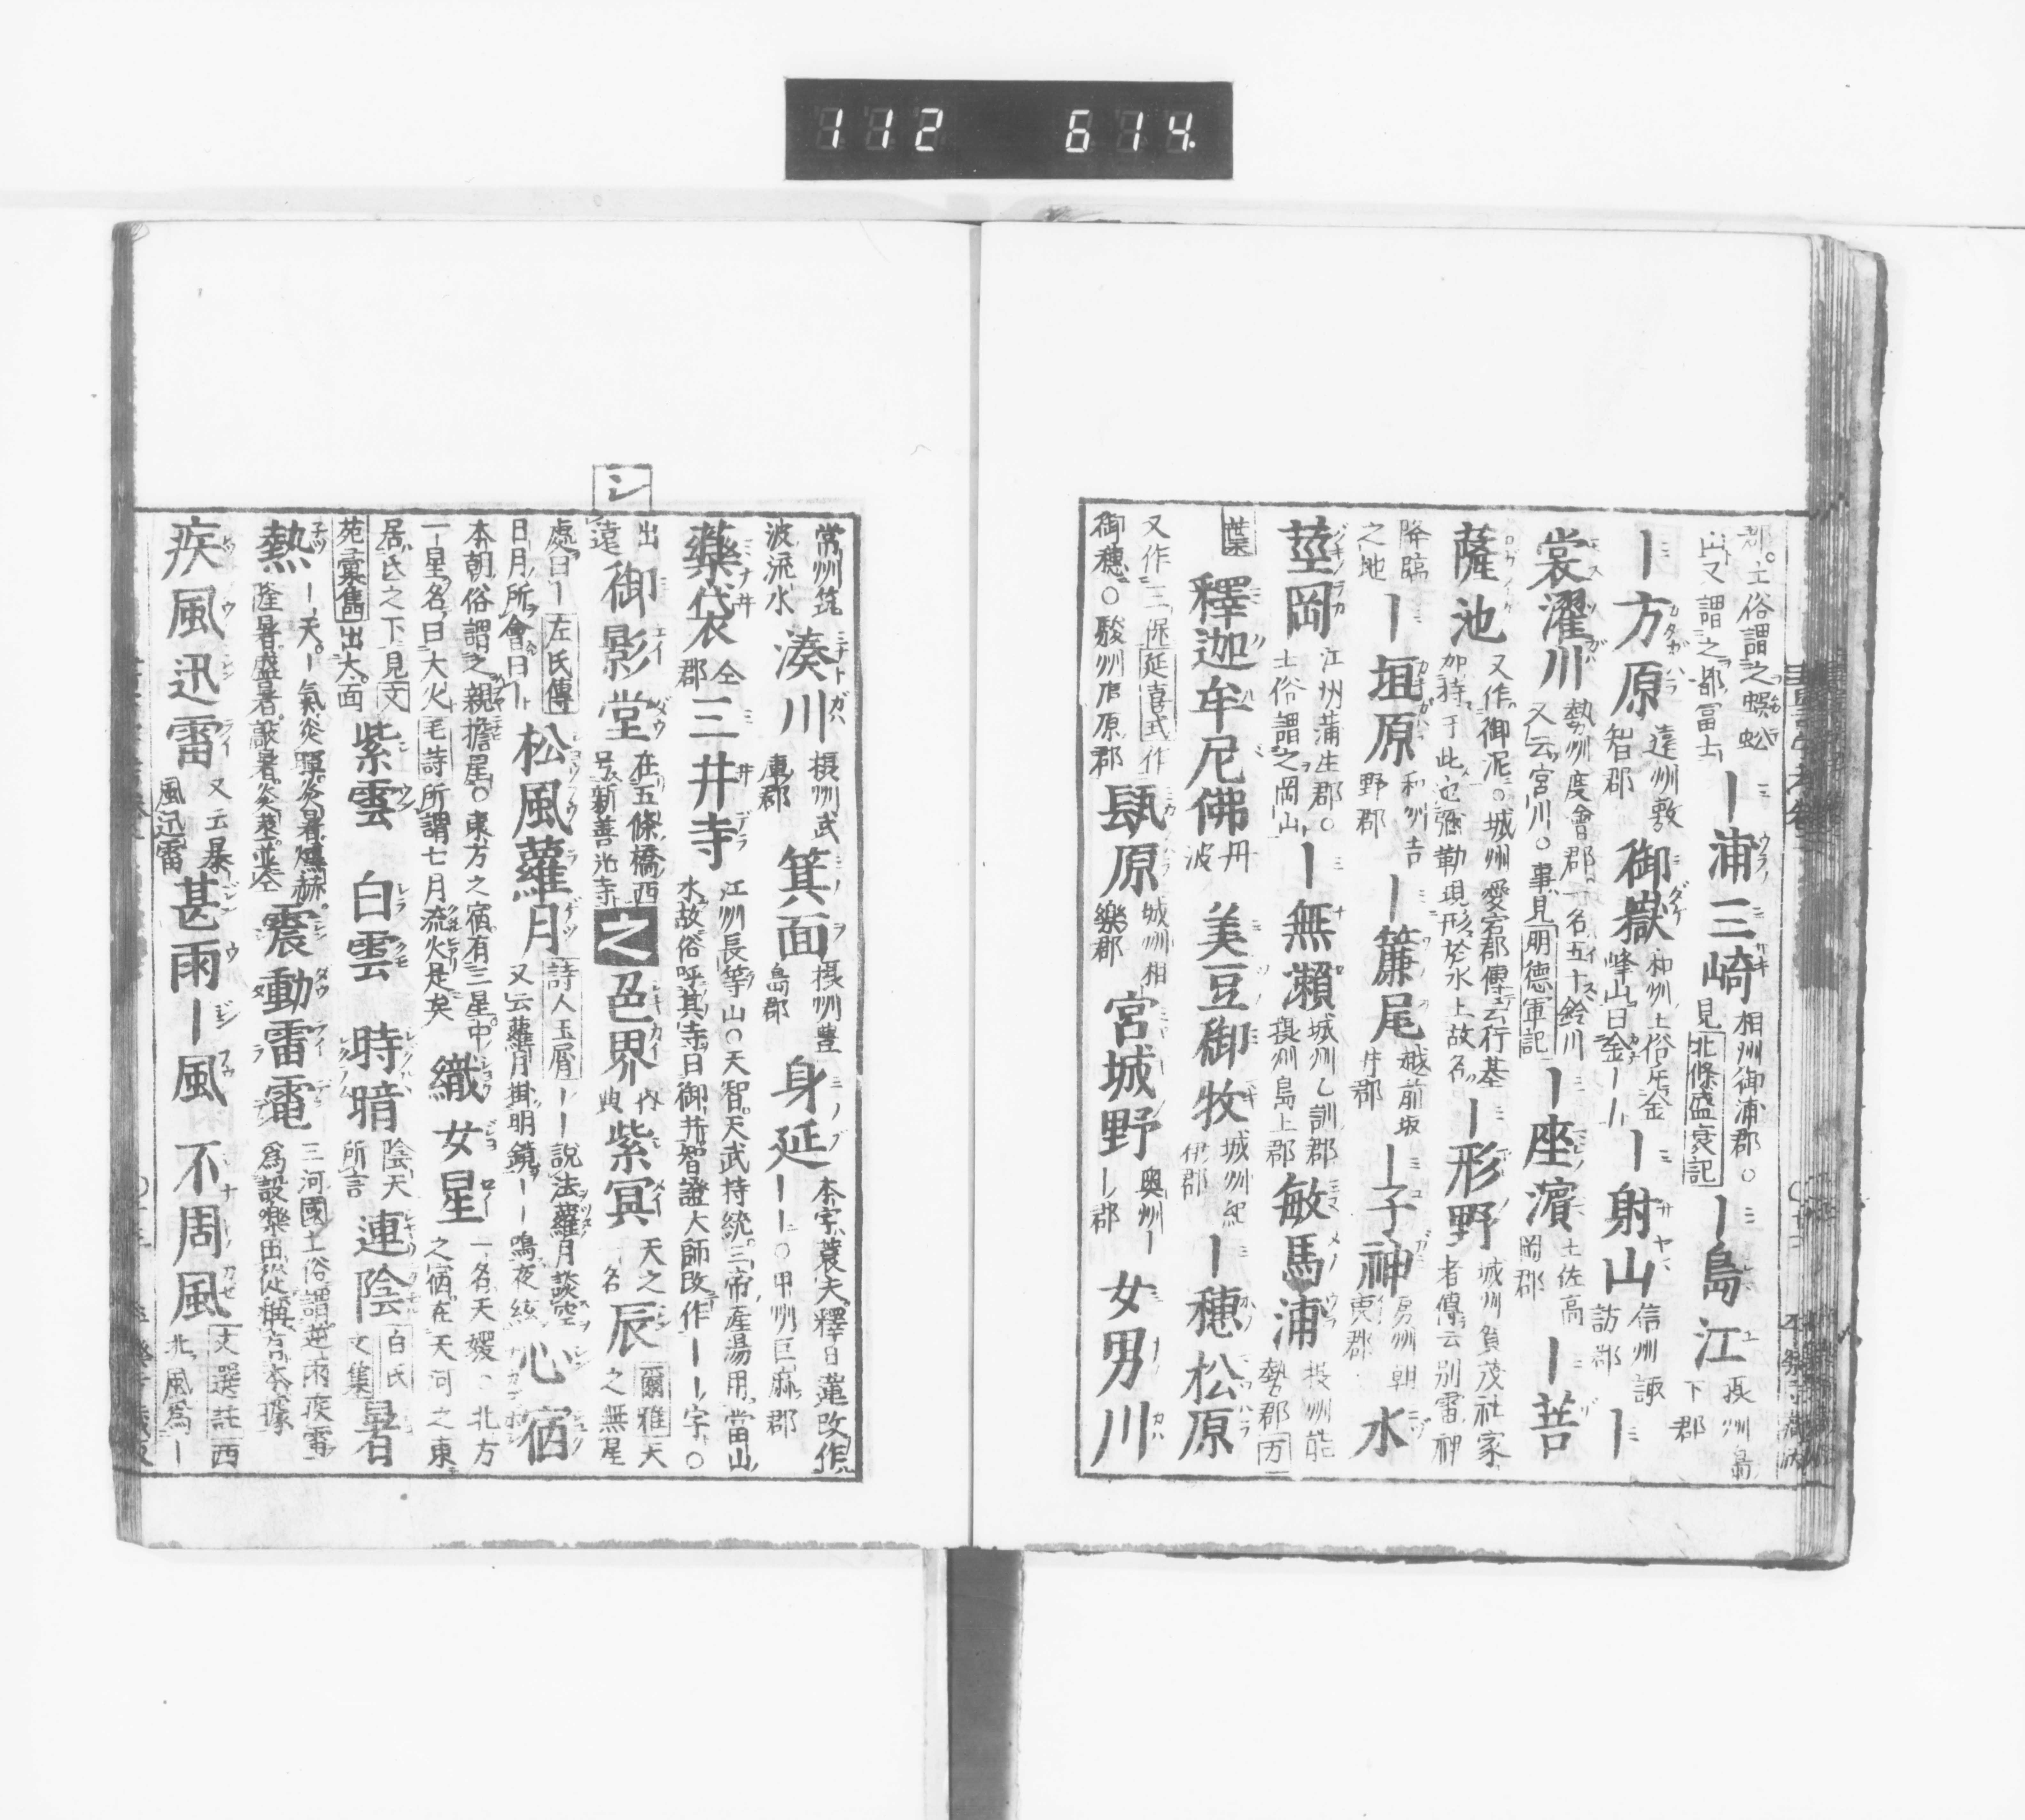 112 614.
郡。土俗謂之蜈蚣
山又謂之都冨士
｜浦三崎 相州御浦郡。
見北條盛衰記
｜島江 摂州島
下郡
｜方原 遠州敷
智郡
御嶽 和州土俗号金
峰山曰金｜｜
｜射山 信州諏
訪郡
｜
裳濯川 勢州度會郡一名五十鈴川
又云宮川。事見明德軍記
｜座濱 土佐高
岡郡
｜菩
薩池 又作御泥。城州愛宕郡傳云行基
加持于此也彌勒現形於水上故名
｜形野 城州賀茂社家
者傳云別雷神
降臨
之地
｜垣原 和州吉
野郡
｜簾尾 越前坂
井郡
｜子神 房州朝
夷郡
水
莖岡 江州蒲生郡。
土俗謂之岡山
｜無瀬 城州乙訓郡
摂州島上郡
敏馬浦 摂州能
勢郡万
葉
釋迦牟尼佛 丹
波
美豆御牧 城州紀
伊郡
｜穂松原
又作三保延喜式作
御穂。駿州庵原郡
瓺原 城州相
樂郡
宮城野 奥州｜
｜郡
女男川
常州筑
波流水
湊川 摂州武
庫郡
箕面 摂州豊
島郡
身延 本字蓑夫釋日蓮改作
｜｜。甲州巨麻郡
藥袋 仝
郡
三井寺 江州長等山。天智天武持統三帝產湯用當山
水故俗呼其寺曰御井智證大師改作｜｜字。
出
遠
御影堂 在五條橋西
号新善光寺
シ
之 色界 内
典
紫冥 天之
名
辰 爾雅天
之無星
處曰｜左氏傳
日月所會曰｜
松風蘿月 詩人玉屑｜｜説法蘿月談空
又云蘿月掛明鏡｜｜鳴夜絃
心宿
本朝俗謂之親擔星。東方之宿有三星中
一星名曰大火毛詩所謂七月流火是矣
織女星 一名天嫒。北方
之宿在天河之東
居氐之下見文
苑彙雋出大面
紫雲 白雲 時暗 陰天
所言
連陰 白氏
文集
暑
熱 ｜天｜氣炎
隆暑盛暑
震動雷電 三河國土俗謂逆雨疾雷
疾風迅雷 又云暴
風迅雷
甚雨｜風 不周風 文選註西
北風為｜